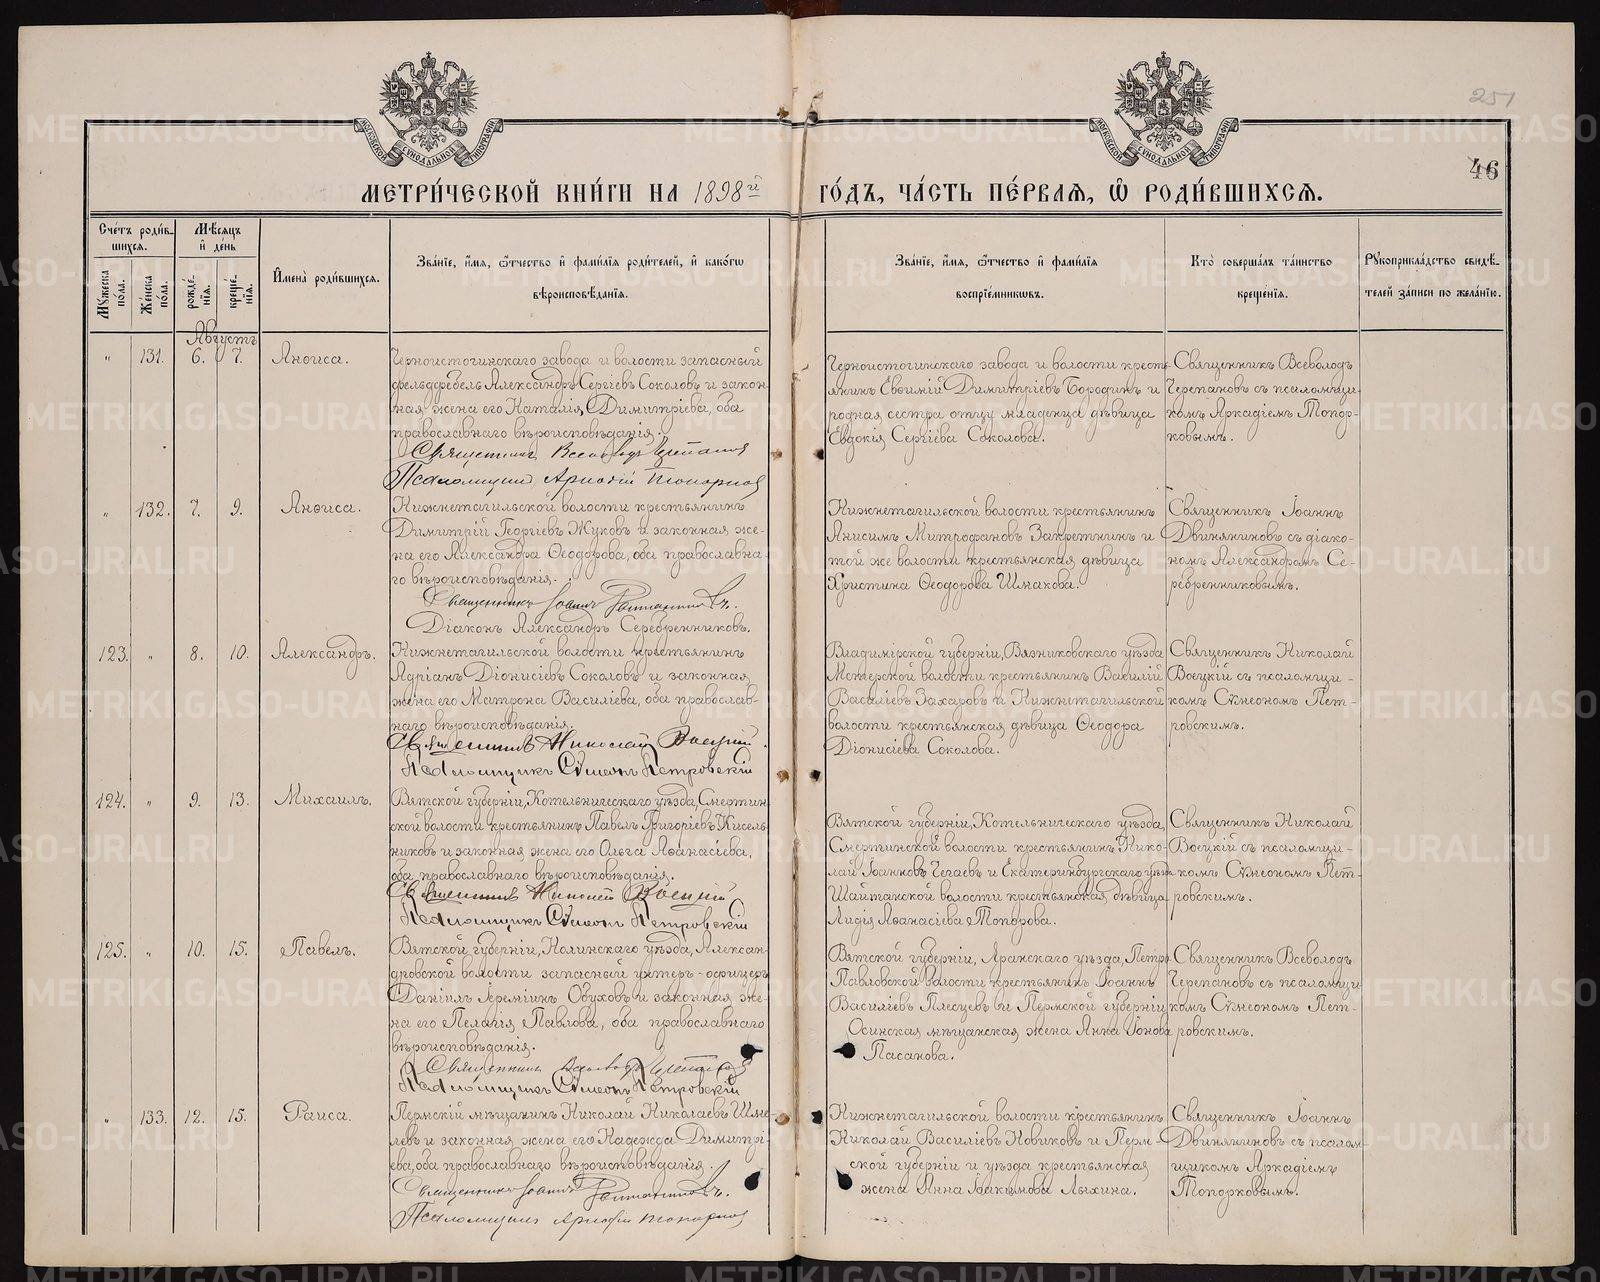 251
46
МОСКОВСКОЙ СУНОДАЛЬНОЙ ТИПОГРАФІИ
МОСКОВСКОЙ СУНОДАЛЬНОЙ ТИПОГРАФІИ
МЕТРИ́ЧЕСКОЙ КНИ́ГИ НА 1898й ГО́ДЪ, ЧА́СТЬ ПЕ́РВАѦ, Ѿ РОДИ́ВШИХСѦ.
Сче́тъ роди́в-
шихсѧ.
Мꙋ́жеска по́ла.
Же́нска по́ла.
Мѣ́сѧцъ
и҆ де́нь
рожде́-
нїѧ.
креще́-
нїѧ.
И҆мена̀ роди́вшихсѧ.
Зва́нїе, и҆́мѧ, ѻ҆́тчество и҆ фами́лїѧ роди́телей, и҆ како́гѡ
вѣроисповѣ́данїѧ.
Зва́нїе, и҆́мѧ, ѻ҆́тчество и҆ фами́лїѧ
воспрїе́мникѡвъ.
Кто̀ соверша́лъ та́инство
креще́нїѧ.
Рꙋкоприкла́дство свидѣ́-
телей за́писи по жела́нїю.
Августъ
" 131. 6. 7. Анѳиса.
Черноистогинскаго завода и волости запасный
фельдфебель Александръ Сергіевъ Соколовъ и закон-
ная жена его Наталія Димитріева, оба
православнаго вѣроисповѣданія.
Священникъ Всеволодъ Черепановъ
Псаломщикъ Аркадій Топорковъ
Черноистогинскаго завода и волости кресть-
янинъ Евѳимій Димитріевъ Бородинъ и
родная сестра отцу младенца дѣвица
Евдокія Сергіева Соколова.
Священникъ Всеволодъ
Черепановъ съ псаломщи-
комъ Аркадіемъ Топор-
ковымъ.
" 132. 7. 9. Анѳиса.
Нижнетагильской волости крестьянинъ
Димитрій Георгіевъ Жуковъ и законная же-
на его Александра Ѳеодорова, оба православна-
го вѣроисповѣданія.
Священникъ Іоаннъ Двиняниновъ.
Діаконъ Александръ Серебренниковъ.
Нижнетагильской волости крестьянинъ
Анисимъ Митрофановъ Запретнинъ и
той же волости крестьянская дѣвица
Христина Ѳеодорова Шмакова.
Священникъ Іоаннъ
Двиняниновъ съ діако-
номъ Александромъ Се-
ребренниковымъ.
123. " 8. 10. Александръ.
Нижнетагильской волости крестьянинъ
Адріанъ Діонисіевъ Соколовъ и законная
жена его Матрона Василіева, оба православ-
наго вѣроисповѣданія.
Священникъ Николай Воецкій.
Псаломщикъ Сѵмеонъ Петровскій
Владимірской губерніи, Вязниковскаго уѣзда
Мстерской волости крестьянинъ Василій
Василіевъ Захаровъ и Нижнетагильской
волости крестьянская дѣвица Ѳеодора
Діонисіева Соколова.
Священникъ Николай
Воецкій съ псаломщи-
комъ Сѵмеономъ Пет-
ровскимъ.
124. " 9. 13. Михаилъ.
Вятской губерніи, Котельническаго уѣзда, Смертин-
ской волости крестьянинъ Павелъ Григоріевъ Кисель-
никовъ и законная жена его Ольга Аѳанасіева,
оба православнаго вѣроисповѣданія.
Священникъ Николай Воецкій
Псаломщикъ Сѵмеонъ Петровскій
Вятской губерніи, Котельническаго уѣзда,
Смертинской волости крестьянинъ Нико-
лай Іоанновъ Чегаевъ и Екатеринбургскаго уѣзда
Шайтанской волости крестьянская дѣвица
Лидія Аѳанасіева Топорова.
Священникъ Николай
Воецкій съ псаломщи-
комъ Сѵмеономъ Пет-
ровскимъ.
125. " 10. 15. Павелъ.
Вятской губерніи, Нолинскаго уѣзда, Алексан-
дровской волости запасный унтеръ-офицеръ
Даніилъ Іереміинъ Обуховъ и законная же-
на его Пелагія Павлова, оба православнаго
вѣроисповѣданія.
Священникъ Всеволодъ Черепановъ
Псаломщикъ Сѵмеонъ Петровскій
Вятской губерніи, Яранскаго уѣзда, Петро-
Павловской волости крестьянинъ Іоаннъ
Василіевъ Плесцевъ и Пермской губерніи
Осинская мѣщанская жена Анна Іонова
Пасанова.
Священникъ Всеволодъ
Черепановъ съ псаломщи-
комъ Сѵмеономъ Пет-
ровскимъ.
" 133. 12. 15. Раиса.
Пермскій мѣщанинъ Николай Николаевъ Шме-
левъ и законная жена его Надежда Димитрі-
ева, оба православнаго вѣроисповѣданія.
Священникъ Іоаннъ Двиняниновъ.
Псаломщикъ Аркадій Топорковъ
Нижнетагильской волости крестьянинъ
Николай Василіевъ Новиковъ и Перм-
ской губерніи и уѣзда крестьянская
жена Анна Іоакимова Лыхина.
Священникъ Іоаннъ
Двиняниновъ съ псалом-
щикомъ Аркадіемъ
Топорковымъ.
METRIKI.GASO-URAL.RU